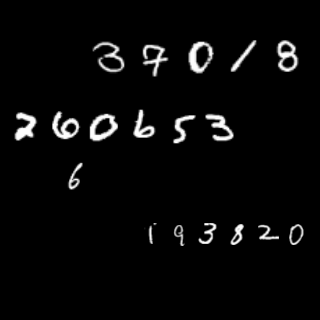 370/8
260653
6
193820